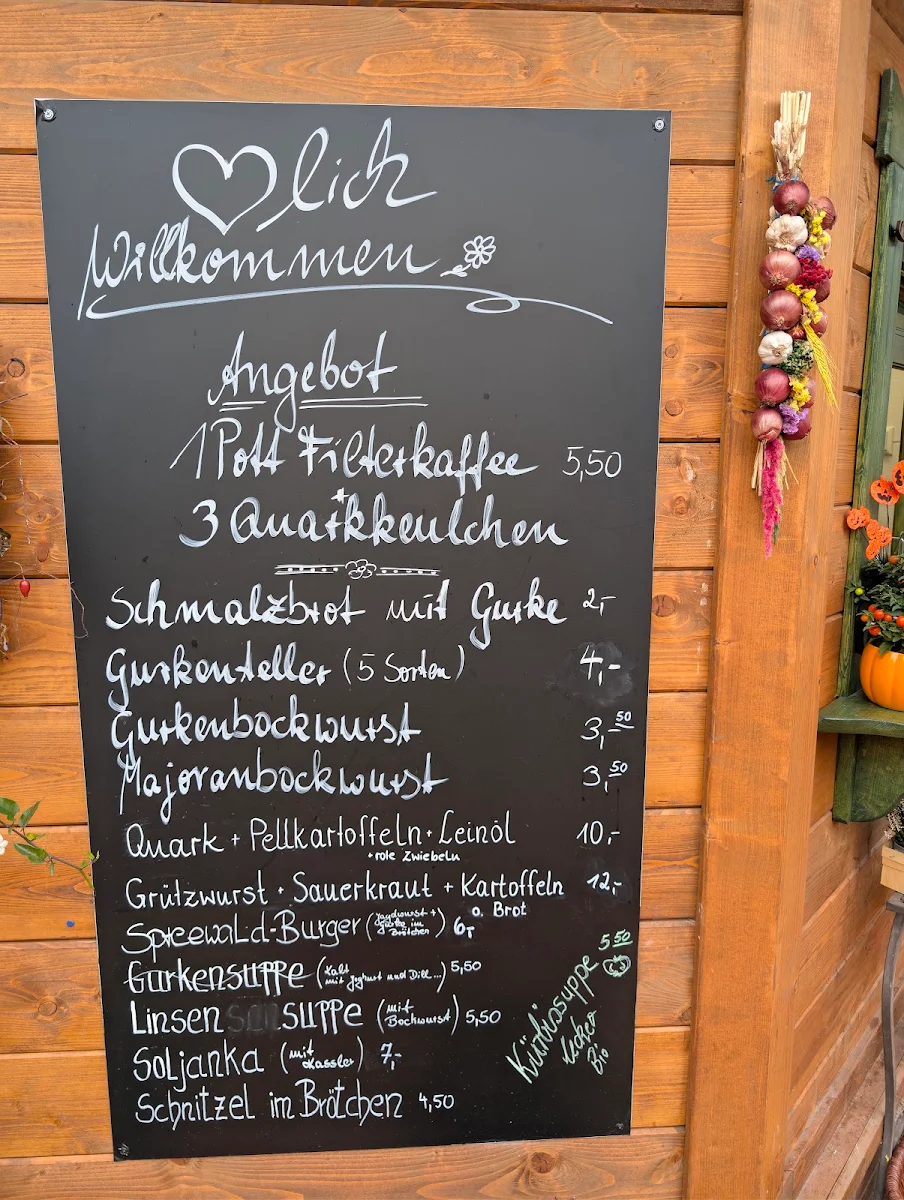 ♡lich
Willkommen
Angebot
1 Pott Filterkaffee 5,50
+
3 Quarkkeulchen
Schmalzbrot mit Gurke 2,-
Gurkenteller (5 Sorten) 4,-
Gurkenbockwurst 3,50
Majoranbockwurst 3,50
Quark + Pellkartoffeln + Leinöl 10,-
+ rote Zwiebeln
Grützwurst + Sauerkraut + Kartoffeln 12,-
o. Brot
Spreewald-Burger (Jagdwurst + Gurke im Brötchen) 6,-
Gurkensuppe (kalt mit Joghurt und Dill...) 5,50
Linsen suppe (mit Bockwurst) 5,50
Soljanka (mit Kassler) 7,-
Schnitzel im Brötchen 4,50
Kürbissuppe 5,50
lecker
Bio